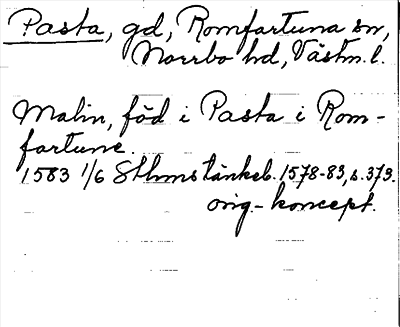 Pasta, gd, Romfartuna sn,
Norrbo hd, Västm. l.
Malin, föd i Pasta i Rom-
fartune.
1583 1/6 Sthms tänkeb. 1578-83, s. 373.
orig.-koncept.